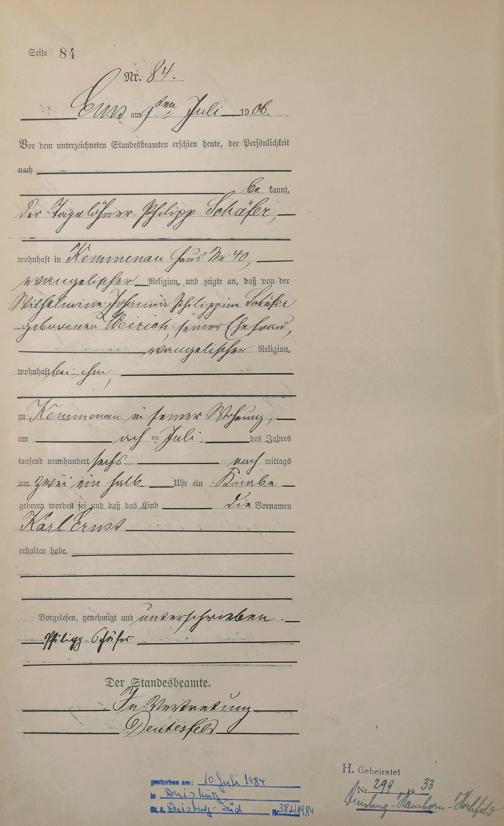 Seite 84
Nr. 84.
Ems am ten Juli 1906.
Vor dem unterzeichneten Standesbeamten erschien heute, der Persönlichkeit
nach
be kannt,
der Tagelöhner Philipp Schäfer,
wohnhaft in Kemmenau Haus Nr 40,
evangelischer Religion, und zeigte an, daß von der
Wilhelmine Philippine Schäfer
geborenen seiner Ehefrau,
evangelischer Religion,
wohnhaft bei ihm,
zu Kemmenau in seiner Wohnung,
am Juli des Jahres
tausend neunhundert sechs nach mittags
um zwei ein halb Uhr ein Knabe
geboren worden sei und daß das Kind die Vornamen
Karl Ernst
erhalten habe.
Vorgelesen, genehmigt und unterschrieben.
Philipp Schäfer
Der Standesbeamte.
In Vertretung
gestorben am: 10. Juli 1984
in Duisburg
St.A. Duisburg-Süd Nr. 382/1984
H. Geheiratet
Nr. 299 19 33
Duisburg-Hamborn-